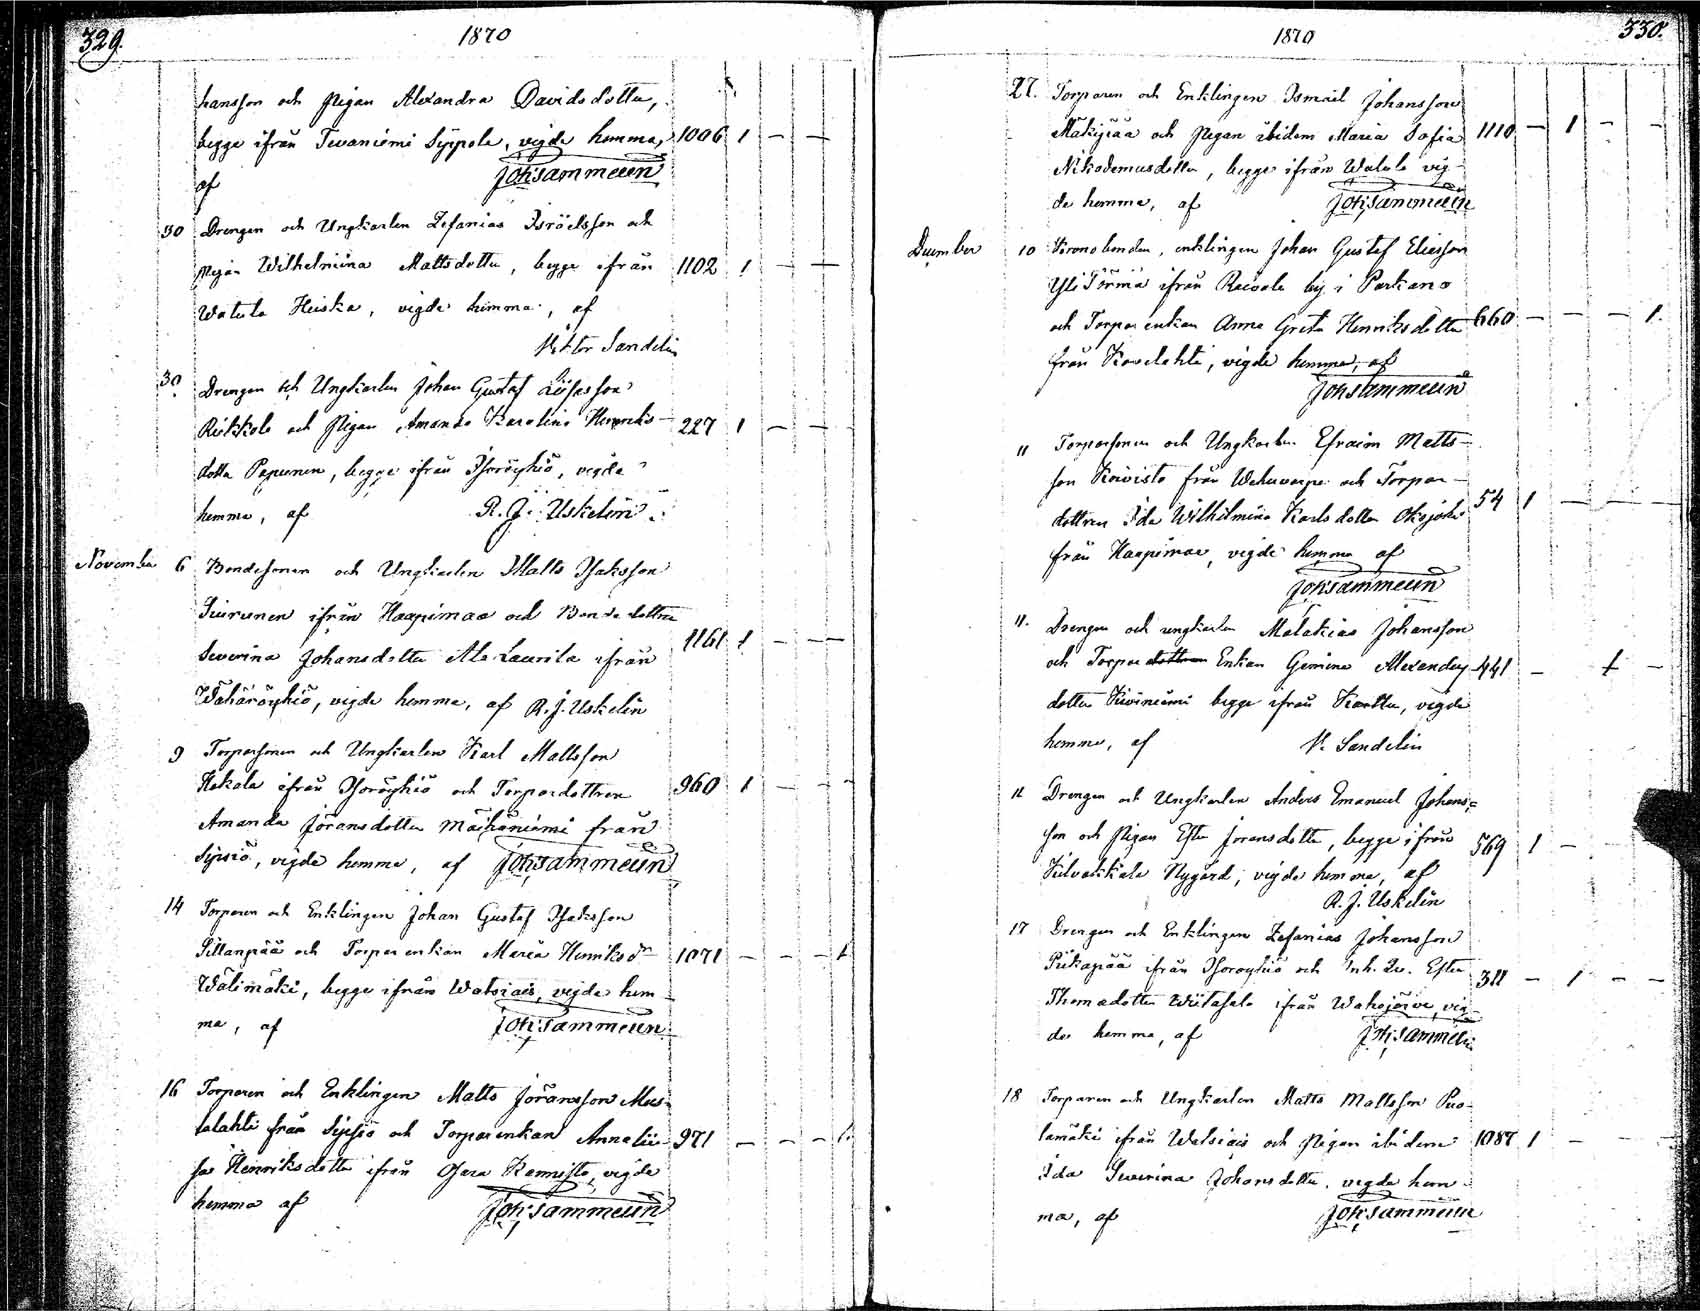 329.
1870
hansson och Pigan Alexandra Davidsdotter,
begge ifrån Tevaniemi Syppola, vigde hemma, 1006 1 — —
af Joh: Sammelin
30 Drengen och Ungkarlen Zefanias Isröelsson och
Pigan Wilhelmina Mattsdotter, begge ifrån 1102 1 — —
Watula Heiska, vigde hemma, af
Viktor Sandelin
30. Drengen och Ungkarlen Johan Gustaf
Riekkola och Pigan Amanda Karolina Henriks- 227 1 — —
dotter Papunen, begge ifrån Ihoröykiö, vigde
hemma, af R. J. Uskelin
November 6 Bondesonen och Ungkarlen Matts Isaksson
Siurunen ifrån Haapimaa och Bondedottren
Severina Johansdotter Ala Laurila ifrån 1161 1 — —
Wähäröyhiö, vigde hemma, af R. J. Uskelin
9 Torparsonen och Ungkarlen Karl Mattsson
Kokola ifrån Isoröyhiö och Torpardottren 960 1 — —
Amanda Jöransdotter Mäkäniemi från
Sipsiö, vigde hemma, af Joh: Sammelin
14 Torparen och Enklingen Johan Gustaf Isaksson
Sillanpää och Torparenkan Maria Henriksdr 1071 — — — 1
Wälimäki, begge ifrån Watsiais, vigde hem-
ma, af Joh: Sammelin
16 Torparen och Enklingen Matts Jöransson Mus-
talahti från Sipsiö och Torparenkan Annalii- 971 — — — 1.
sa Henriksdotter ifrån Osara Kannisto, vigde
hemma af Joh: Sammelin
1870
330.
27. Torparen och Enklingen Ismael Johansson
Mäkipää och Pigan ibidem Maria Sofia 1110 — 1 — —
Nikodemusdotter, begge ifrån Watula vig-
de hemma, af Joh: Sammelin
December 10 Kronobonden, enklingen Johan Gustaf Eliesson
Yli Törmä ifrån Raivala by i Parkano
och Torparenkan Anna Greta Henriksdotter 660 — — — 1.
från Kovelahti, vigde hemma, af
Joh: Sammelin
11 Torparsonen och Ungkarlen Efraim Matts-
son Koivisto från Wehuvarpe och Torpar-
dottren Ida Wilhelmina Karlsdotter Oksajärvi 54 1 — —
från Haapimaa, vigde hemma af
Joh: Sammelin
11. Drengen och ungkarlen Malakias Johansson
och Torpardottren Enkan Gemina Alexanders- 441 — 1 —
dotter Kiviniemi begge ifrån Karttu, vigde
hemma, af V. Sandelin
11 Drengen och Ungkarlen Anders Emanuel Johans-
son och Pigan Ester Jöransdotter, begge ifrån 569 1 —
Kilvakkala Nygård, vigde hemma, af
R. J. Uskelin
17 Drengen och Enklingen Zefanias Johansson
Pitkäpää ifrån Isoroyhiö och Inh. Qv. Ester 311 — 1 — —
Thomasdotter Wiitasalo ifrån Wahojärvi, vig-
de hemma, af Joh: Sammelin
18 Torparen och Ungkarlen Matts Mattsson Puo-
lamäki ifrån Watsiais och Pigan ibidem 1087 1 —
Ida Severina Johansdotter, vigde hem-
ma, af Joh: Sammelin